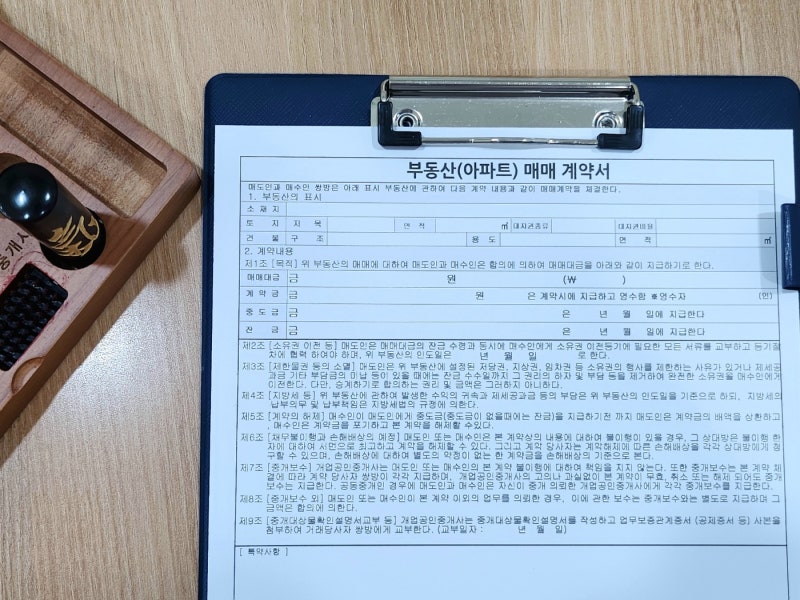 부동산(아파트) 매매 계약서
매도인과 매수인 쌍방은 아래 표시 부동산에 관하여 다음 계약 내용과 같이 매매계약을 체결한다.
1. 부동산의 표시
소 재 지
토 지 지 목 면 적 ㎡ 대지권종류 대지권비율
건 물 구 조 용 도 면 적 ㎡
2. 계약내용
제1조 [목적] 위 부동산의 매매에 대하여 매도인과 매수인은 합의에 의하여 매매대금을 아래와 같이 지급하기로 한다.
매매대금 금 원 (₩ )
계 약 금 금 원 은 계약시에 지급하고 영수함 ※영수자 (인)
중 도 금 금 은 년 월 일에 지급한다
잔 금 금 은 년 월 일에 지급한다
제2조 [소유권 이전 등] 매도인은 매매대금의 잔금 수령과 동시에 매수인에게 소유권 이전등기에 필요한 모든 서류를 교부하고 등기절
차에 협력 하여야 하며, 위 부동산의 인도일은 년 월 일 로 한다.
제3조 [제한물권 등의 소멸] 매도인은 위 부동산에 설정된 저당권, 지상권, 임차권 등 소유권의 행사를 제한하는 사유가 있거나 제세공
과금 기타 부담금의 미납 등이 있을 때에는 잔금 수수일까지 그 권리의 하자 및 부담 등을 제거하여 완전한 소유권을 매수인에게
이전한다. 다만, 승계하기로 합의하는 권리 및 금액은 그러하지 아니하다.
제4조 [지방세 등] 위 부동산에 관하여 발생한 수익의 귀속과 제세공과금 등의 부담은 위 부동산의 인도일을 기준으로 하되, 지방세의
납부의무 및 납부책임은 지방세법의 규정에 의한다.
제5조 [계약의 해제] 매수인이 매도인에게 중도금(중도금이 없을때에는 잔금)을 지급하기전 까지 매도인은 계약금의 배액을 상환하고
, 매수인은 계약금을 포기하고 본 계약을 해제할 수있다.
제6조 [채무불이행과 손해배상의 예정] 매도인 또는 매수인은 본 계약상의 내용에 대하여 불이행이 있을 경우, 그 상대방은 불이행 한
자에 대하여 서면으로 최고하고 계약을 해제할 수 있다. 그리고 계약 당사자는 계약해제에 따른 손해배상을 각각 상대방에게 청
구할 수 있으며, 손해배상에 대하여 별도의 약정이 없는 한 계약금을 손해배상의 기준으로 본다.
제7조 [중개보수] 개업공인중개사는 매도인 또는 매수인의 본 계약 불이행에 대하여 책임을 지지 않는다. 또한 중개보수는 본 계약 체
결에 따라 계약 당사자 쌍방이 각각 지급하며, 개업공인중개사의 고의나 과실없이 본 계약이 무효, 취소 또는 해제 되어도 중개
보수는 지급한다. 공동중개인 경우에 매도인과 매수인은 자신이 중개 의뢰한 개업공인중개사에게 각각 중개보수를 지급한다.
제8조 [중개보수 외] 매도인 또는 매수인이 본 계약 이외의 업무를 의뢰한 경우, 이에 관한 보수는 중개보수와는 별도로 지급하며 그
금액은 합의에 의한다.
제9조 [중개대상물확인설명서교부 등] 개업공인중개사는 중개대상물확인설명서를 작성하고 업무보증관계증서 (공제증서 등) 사본을
첨부하여 거래당사자 쌍방에게 교부한다. (교부일자 : 년 월 일)
[ 특약사항 ]
중개사